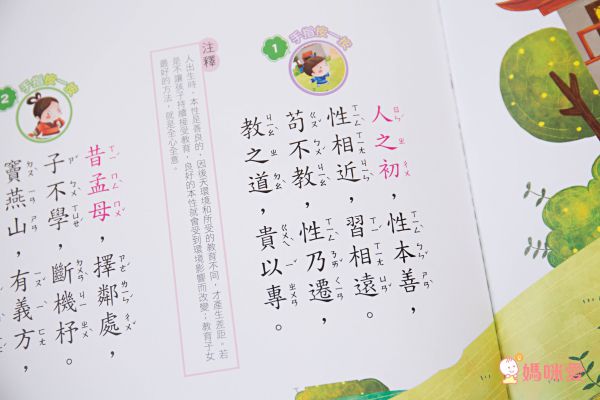 1
手指按一按
人之初,性本善,
性相近,習相遠。
苟不教,性乃遷,
教之道,貴以專。
注釋
人出生時,本性是善良的,因後天環境和所受的教育不同,才產生差距。若
是不讓孩子持續接受教育,良好的本性就會受到環境影響而改變;教育子女
最好的方法,就是全心全意。
2
手指按一按
昔孟母,擇鄰處,
子不學,斷機杼。
竇燕山,有義方,
媽咪愛